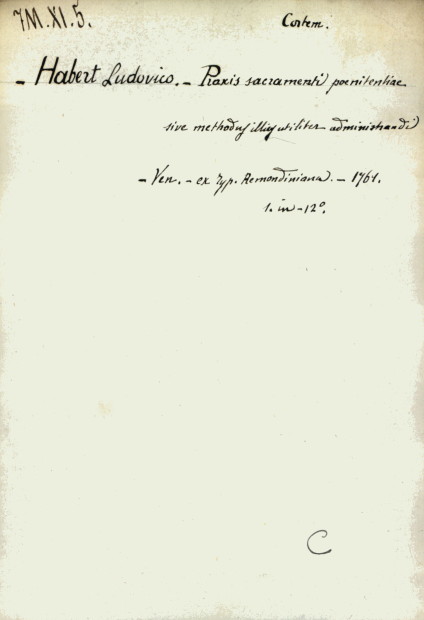 7M.XI.5.
Contem.
- Habert Ludovico. - Praxis sacramenti poenitentiae
sive methodus illius utiliter administrandi
- Ven. - ex typ. Remondiniana. - 1761.
1. in - 12°.
C